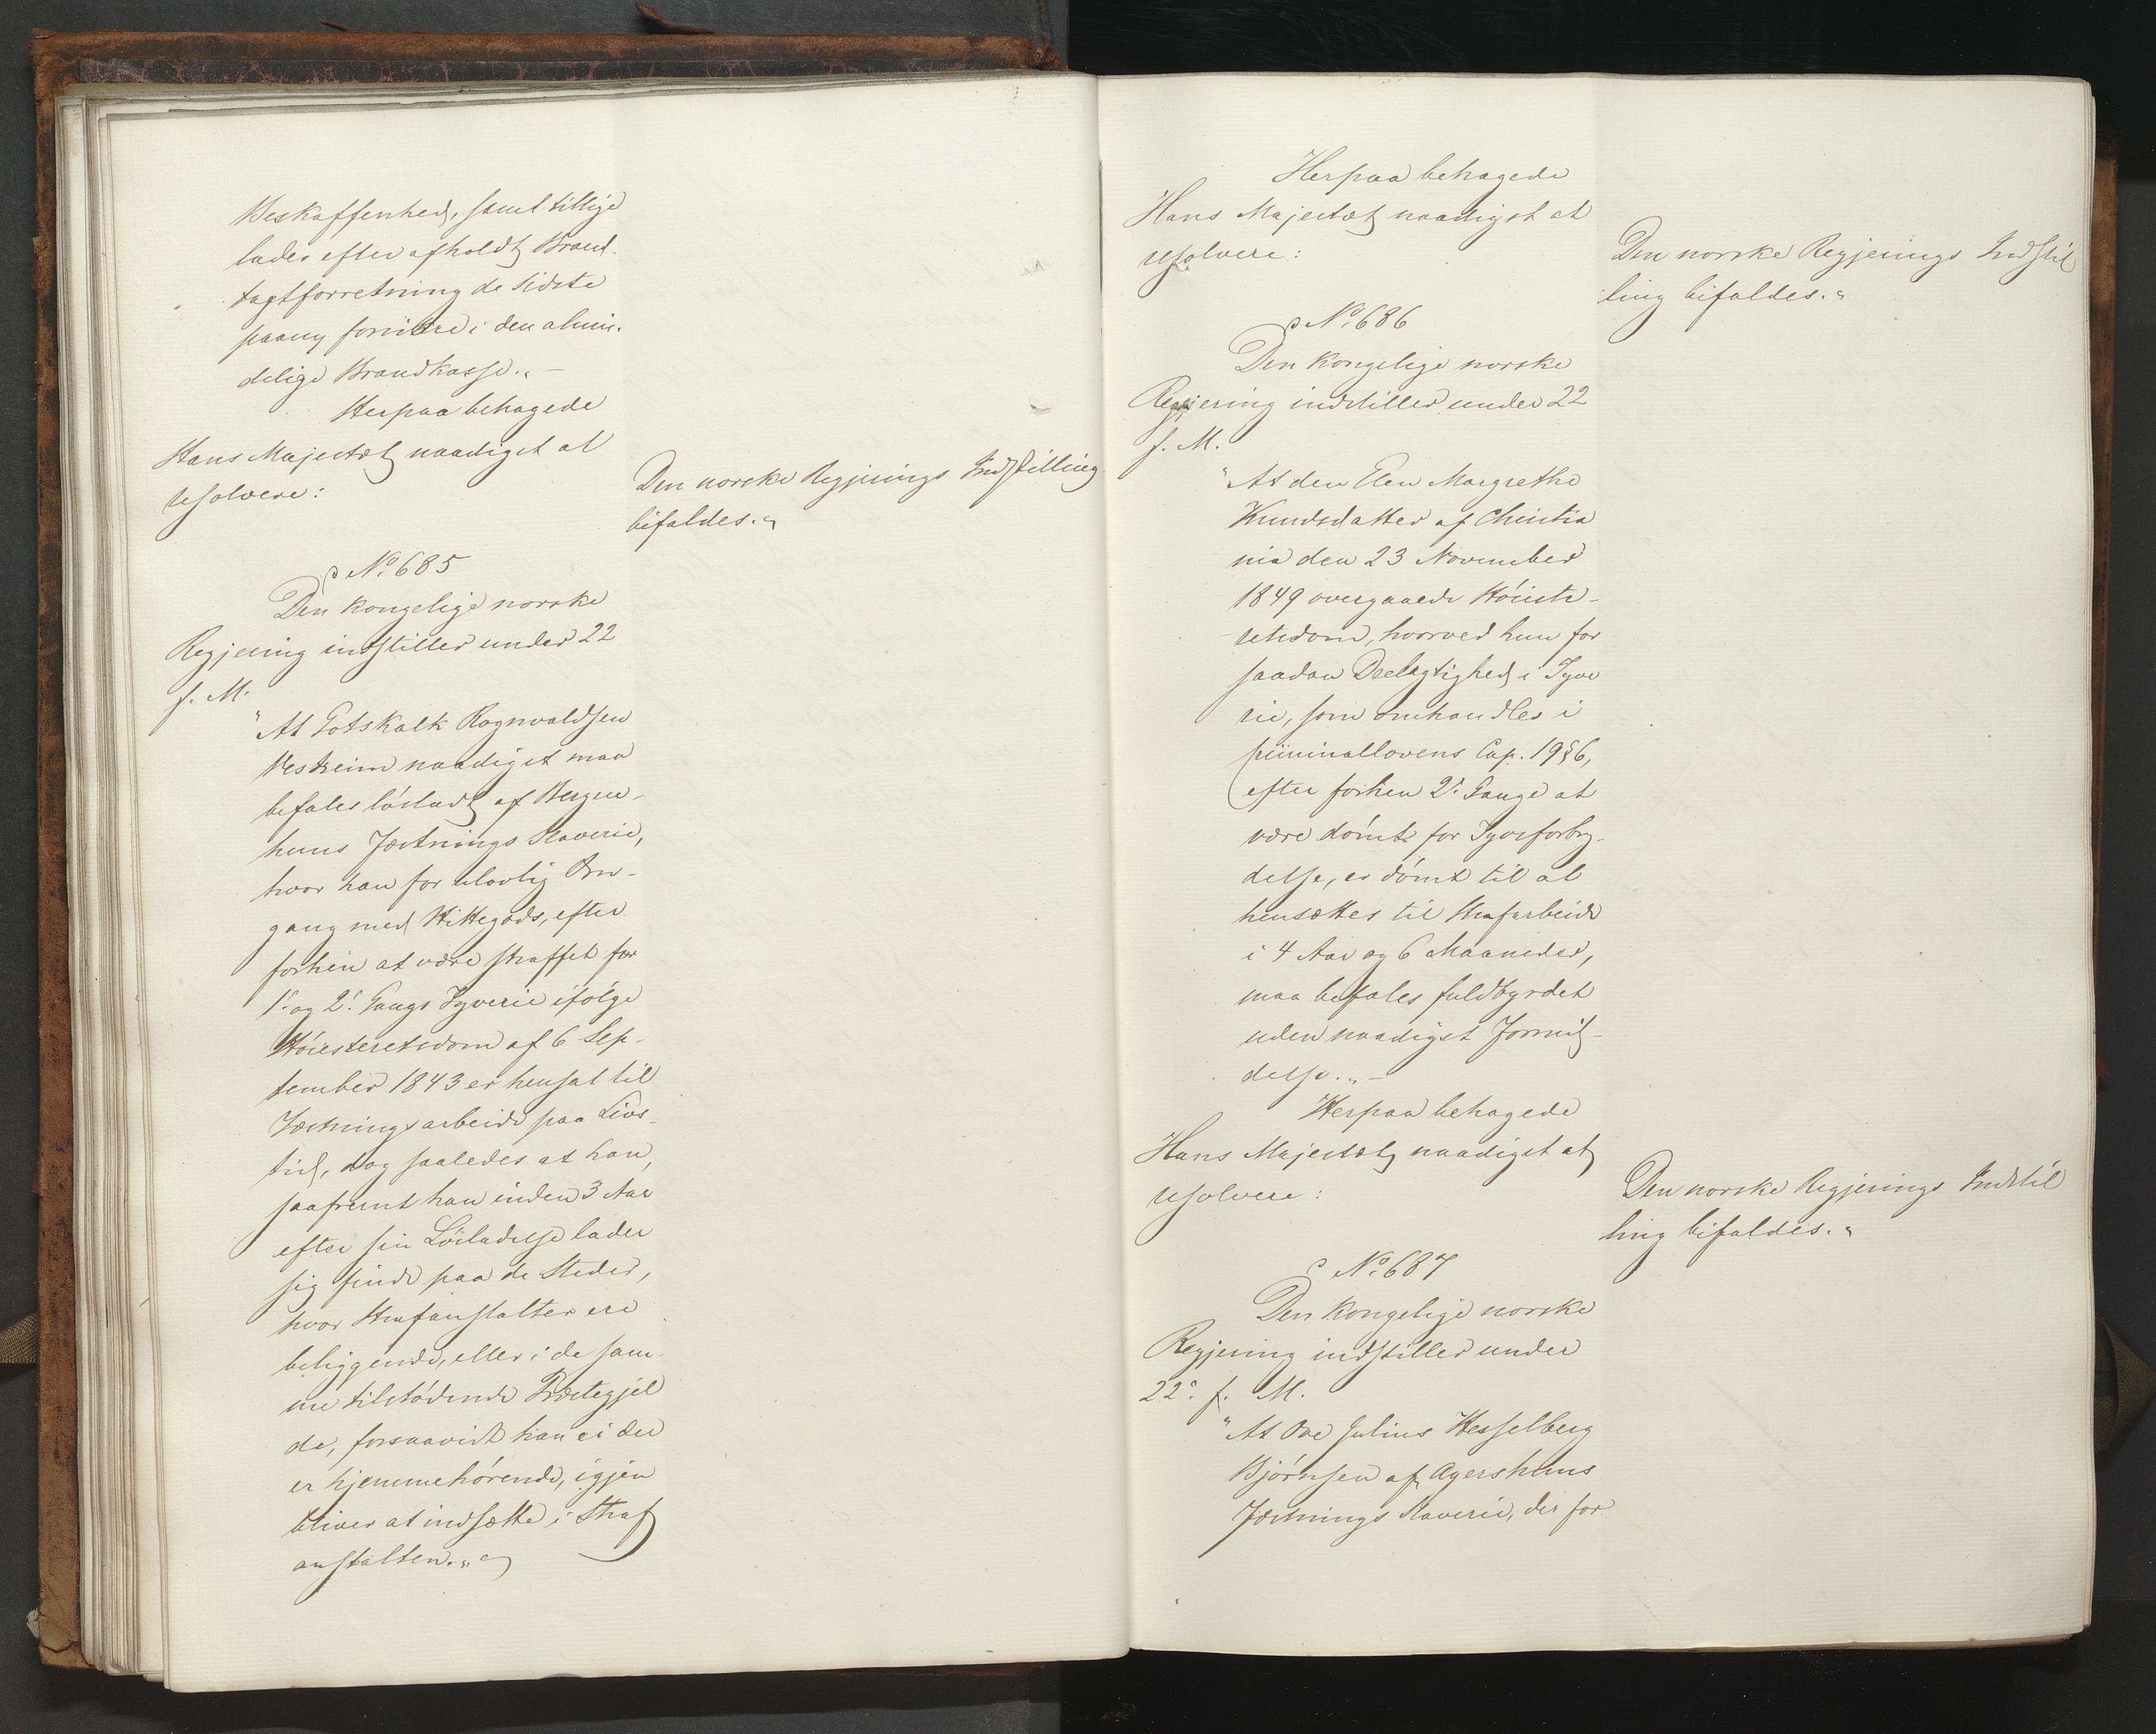 Beskaffenhed, samt tillige
lades efter afholdt Brand-
taxtforretning de sidste
paany forsikre i den almin-
delige Brandkasse.„ —
Herpaa behagede
Hans Majestæt naadigst at
resolvere:
Den norske Regjerings Indstilling
bifaldes.„
No. 685
Den kongelige norske
Regjering indstiller under 22
f. M.
"At Gotskalk Rognvaldsen
Vestreim naadigst maa
befales løsladt af Bergen-
huus Fæstnings Slaverie,
hvor han for ulovlig Om-
gang med Hittegods, efter
forhen at være straffet for
1ste og 2den Gangs Tyverie ifølge
Høiesteretsdom af 6 Sep-
tember 1843 er hensat til
Fæstningsarbeide paa Livs-
tid, dog saaledes at han,
saafremt han inden 3 Aar
efter sin Løsladelse lader
sig finde paa de Steder,
hvor Strafanstalter ere
beliggende, eller i de sam-
me tilstødende Præstegjel
de, forsaavidt han ei der
er hjemmehørende, igjen
bliver at indsætte i Straf
anstalten.„
Herpaa behagede
Hans Majestæt naadigst at
resolvere:
Den norske Regjerings Indstil
ling bifaldes.„
No. 686
Den kongelige norske
Regjering indstiller under 22
f. M.
"At den Elen Margrethe
Knudsdatter af Christia
nia den 23 November
1849 overgaaede Høieste-
retsdom, hvorved hun for
saadan Deelagtighed i Tyve
rie, som omhandles i
Criminallovens Cap. 19 § 6,
efter forhen 2de Gange at
være dømt for Tyvsforbry-
delse, er dømt til at
hensættes til Strafarbeide
i 4 Aar og 6 Maaneder,
maa befales fuldbyrdet
uden naadigst Formil-
delse.„ —
Herpaa behagede
Hans Majestæt naadigst at
resolvere:
Den norske Regjerings Indstil
ling bifaldes.„
No. 687
Den kongelige norske
Regjering indstiller under
22de f. M.
"At Ove Julius Hesselberg
Bjørnsen af Agershuus
Fæstnings Slaverie, der for